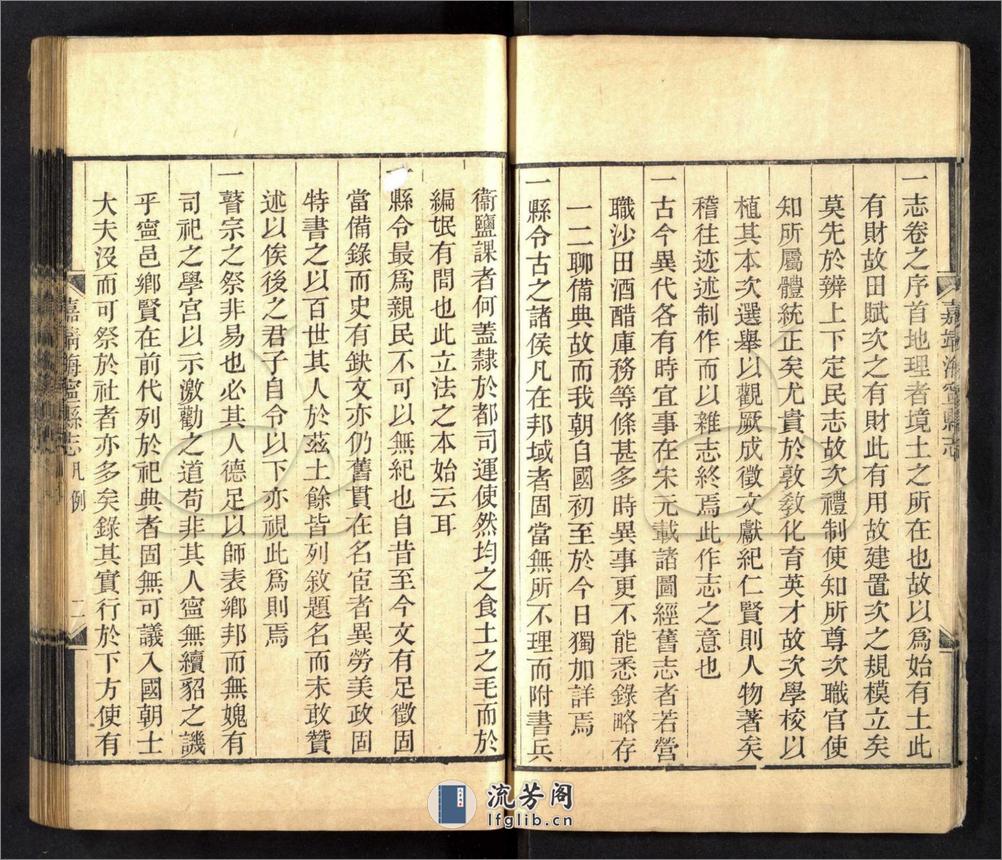 一志卷之序首地理者境土之所在也故以爲始有土此
有財故田賦次之有財此有用故建置次之規模立矣
莫先於辨上下定民志故次禮制使知所尊次職官使
知所屬體統正矣尤貴於敦敎化育英才故次學校以
植其本次選舉以觀厥成徵文獻紀仁賢則人物著矣
稽往迹述制作而以雜志終焉此作志之意也
一古今異代各有時宜事在宋元載諸圖經舊志者若營
職沙田酒醋庫務等條甚多時異事更不能悉錄略存
一二聊備典故而我朝自國初至於今日獨加詳焉
一縣令古之諸侯凡在邦域者固當無所不理而附書兵
嘉靖海寧縣志
衞鹽課者何蓋隸於都司運使然均之食土之毛而於
編氓有問也此立法之本始云耳
一縣令最爲親民不可以無紀也自昔至今文有足徵固
當備錄而史有缺文亦仍舊貫在名宦者異勞美政固
特書之以百世其人於茲土餘皆列敘題名而未敢贊
述以俟後之君子自令以下亦視此爲則焉
一瞽宗之祭非易也必其人德足以師表鄉邦而無媿有
司祀之學宮以示激勸之道苟非其人寧無續貂之譏
乎寧邑鄉賢在前代列於祀典者固無可議入國朝士
大夫沒而可祭於社者亦多矣錄其實行於下方使有
嘉靖海寧縣志 凡例 二
流芳阁
lfglib.cn